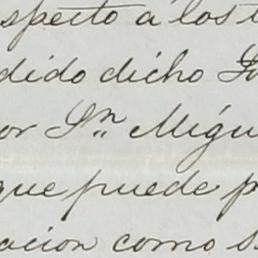 specto á los
dido dicho
or Sn. Migu
que puede p
acion como s